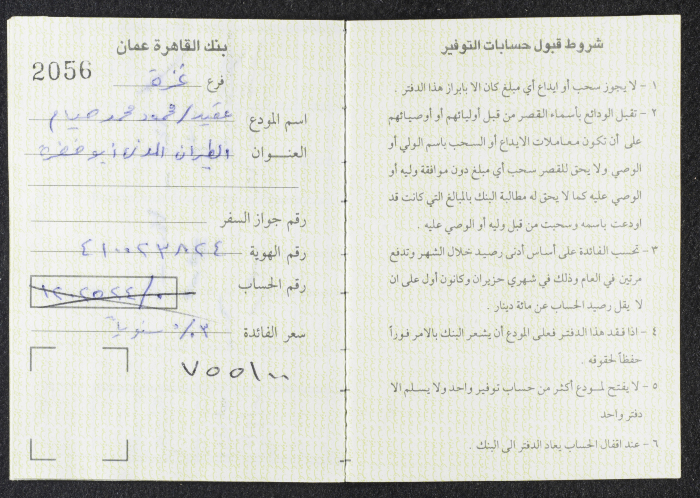 شروط قبول حسابات التوفير
١ - لا يجوز سحب أو ايداع أي مبلغ كان الا بابراز هذا الدفتر .
٢ - تقبل الودائع بأسماء القصر من قبل أوليائهم أو أوصيائهم
على أن تكون معاملات الايداع أو السحب باسم الولي أو
الوصي ولا يحق للقصر سحب أي مبلغ دون موافقة وليه أو
الوصي عليه كما لا يحق له مطالبة البنك بالمبالغ التي كانت قد
اودعت باسمه وسحبت من قبل وليه أو الوصي عليه .
٣ - تحسب الفائدة على أساس أدنى رصيد خلال الشهر وتدفع
مرتين في العام وذلك في شهري حزيران وكانون أول على ان
لا يقل رصيد الحساب عن مائة دينار .
٤ - اذا فقد هذا الدفتر فعلى المودع أن يشعر البنك بالامر فوراً
حفظاً لحقوقه .
٥ - لا يفتح لمودع أكثر من حساب توفير واحد ولا يسلم الا
دفتر واحد
٦ - عند اقفال الحساب يعاد الدفتر الى البنك .
بنك القاهرة عمان
2056
فرع غزة
اسم المودع عقيد / محمود محمد صيام
العنوان الطيران المدني أبو خضرة
رقم جواز السفر
رقم الهوية ٤١٠٠٢٣٨٢٤
رقم الحساب
سعر الفائدة ٠٣٪ سنوياً
٧٥٥١٠٠